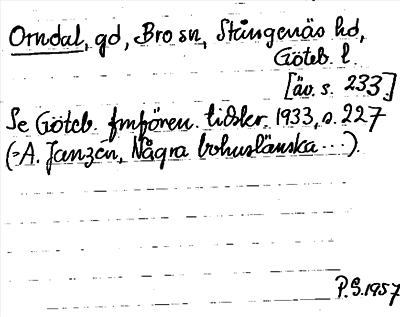 Orndal, gd, Bro sn, Stångenäs hd,
Göteb. l.
[äv. s. 233.]
Se Göteb. fmfören. tidskr. 1933, s. 227
(= A. Janzén, Några bohuslänska ...).
P.S. 1957